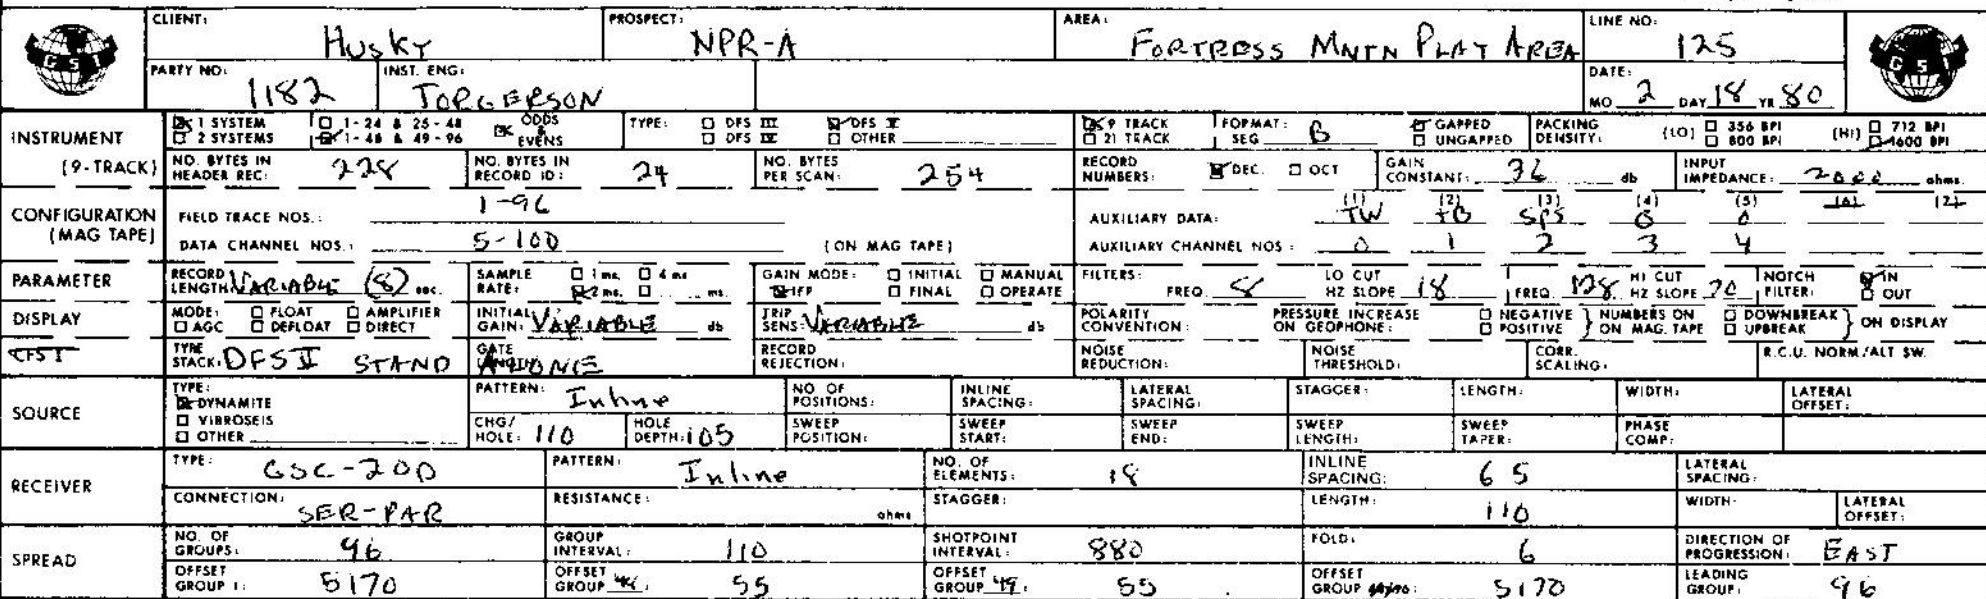 CLIENT: Husky PROSPECT: NPR-A AREA: FORTRESS MNTN PLAY AREA LINE NO: 125
GSI GSI
PARTY NO: 1182 INST. ENG: TORGERSON DATE: MO 2 DAY 18 YR 80
INSTRUMENT 1 SYSTEM 1-24 & 25-48 ODDS & EVENS TYPE: DFS III DFS V 9 TRACK FORMAT: SEG B GAPPED PACKING DENSITY: (LO) 356 BPI (HI) 712 BPI
2 SYSTEMS 1-48 & 49-96 DFS IV OTHER 21 TRACK UNGAPPED 800 BPI 1600 BPI
(9-TRACK) NO. BYTES IN HEADER REC: 228 NO. BYTES IN RECORD ID: 24 NO. BYTES PER SCAN: 254 RECORD NUMBERS: DEC. OCT GAIN CONSTANT: 36 db INPUT IMPEDANCE: 2000 ohms.
CONFIGURATION (MAG TAPE) FIELD TRACE NOS.: 1-96 AUXILIARY DATA: (1) TW (2) TB (3) SPS (4) 0 (5) 0
DATA CHANNEL NOS.: 5-100 (ON MAG TAPE) AUXILIARY CHANNEL NOS: 0 1 2 3 4
PARAMETER RECORD LENGTH VARIABLE (8) sec. SAMPLE RATE: 1 ms. 4 ms 2 ms. ms. GAIN MODE: INITIAL MANUAL IFP FINAL OPERATE FILTERS: FREQ. 8 LO CUT HZ SLOPE 18 FREQ. 128 HI CUT HZ SLOPE 70 NOTCH FILTER: IN OUT
DISPLAY MODE: FLOAT AMPLIFIER AGC DEFLOAT DIRECT INITIAL GAIN: VARIABLE db TRIP SENS: VARIABLE db POLARITY CONVENTION: PRESSURE INCREASE ON GEOPHONE: NEGATIVE POSITIVE NUMBERS ON MAG. TAPE DOWNBREAK UPBREAK ON DISPLAY
CFS I TYPE STACK: DFS V STAND ALONE GATE LENGTH: RECORD REJECTION: NOISE REDUCTION: NOISE THRESHOLD: CORR. SCALING: R.C.U. NORM/ALT SW.
SOURCE TYPE: DYNAMITE VIBROSEIS OTHER PATTERN: Inline NO OF POSITIONS: INLINE SPACING: LATERAL SPACING: STAGGER: LENGTH: WIDTH: LATERAL OFFSET:
CHG/HOLE: 110 HOLE DEPTH: 105 SWEEP POSITION: SWEEP START: SWEEP END: SWEEP LENGTH: SWEEP TAPER: PHASE COMP:
RECEIVER TYPE: GSC-20D PATTERN: Inline NO. OF ELEMENTS: 18 INLINE SPACING: 6 5 LATERAL SPACING:
CONNECTION: SER-PAR RESISTANCE: ohms STAGGER: LENGTH: 110 WIDTH: LATERAL OFFSET:
SPREAD NO. OF GROUPS: 96 GROUP INTERVAL: 110 SHOTPOINT INTERVAL: 880 FOLD: 6 DIRECTION OF PROGRESSION: EAST
OFFSET GROUP 1: 5170 OFFSET GROUP 48: 55 OFFSET GROUP 49: 55 OFFSET GROUP 96: 5170 LEADING GROUP: 96